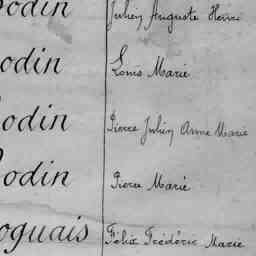 odin Julien Auguste Henri
odin Louis Marie
odin Pierre Julien Anne Marie
odin Pierre Marie
oguais Félix Frédéric Marie